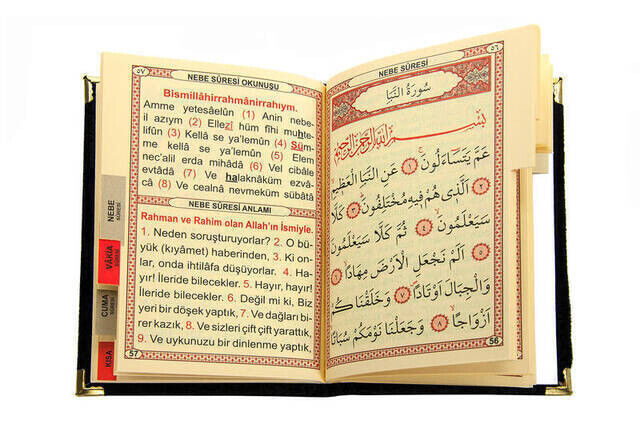 ٥٧
NEBE SÛRESİ OKUNUŞU
Bismillâhirrahmânirrahıym.
Amme yetesâelûn (1) Anin nebe-
il azıym (2) Ellezî hüm fîhi muhte-
lifûn (3) Kellâ se ya'lemûn (4) Süm-
me kellâ se ya'lemûn (5) Elem
nec'alil erda mihâdâ (6) Vel cibâle
evtâdâ (7) Ve halaknâküm ezvâ-
câ (8) Ve cealnâ nevmeküm sübâtâ
NEBE SÛRESİ ANLAMI
Rahman ve Rahim olan Allah'ın İsmiyle.
1. Neden soruşturuyorlar? 2. O bü-
yük (kıyâmet) haberinden, 3. Ki on-
lar, onda ihtilâfa düşüyorlar. 4. Ha-
yır! İleride bilecekler. 5. Hayır, hayır!
İleride bilecekler. 6. Değil mi ki, Biz
yeri bir döşek yaptık, 7. Ve dağları bi-
rer kazık, 8. Ve sizleri çift çift yarattık,
9. Ve uykunuzu bir dinlenme yaptık,
57
NEBE
SÛRESİ
VÂKIA
SÛRESİ
CUMA
SÛRESİ
KISA
٥٦
NEBE SÛRESİ
سُورَةُ النَّبَأِ
بِسْمِ اللّٰهِ الرَّحْمٰنِ الرَّحِيمِ
عَمَّ يَتَسَاءَلُونَ ﴿١﴾ عَنِ النَّبَاِ الْعَظِيمِ ﴿٢﴾
اَلَّذِى هُمْ فِيهِ مُخْتَلِفُونَ ﴿٣﴾ كَلَّا
سَيَعْلَمُونَ ﴿٤﴾ ثُمَّ كَلَّا سَيَعْلَمُونَ ﴿٥﴾
اَلَمْ نَجْعَلِ الْاَرْضَ مِهَادًا ﴿٦﴾
وَالْجِبَالَ اَوْتَادًا ﴿٧﴾ وَخَلَقْنَاكُمْ
اَزْوَاجًا ﴿٨﴾ وَجَعَلْنَا نَوْمَكُمْ سُبَاتًا
56